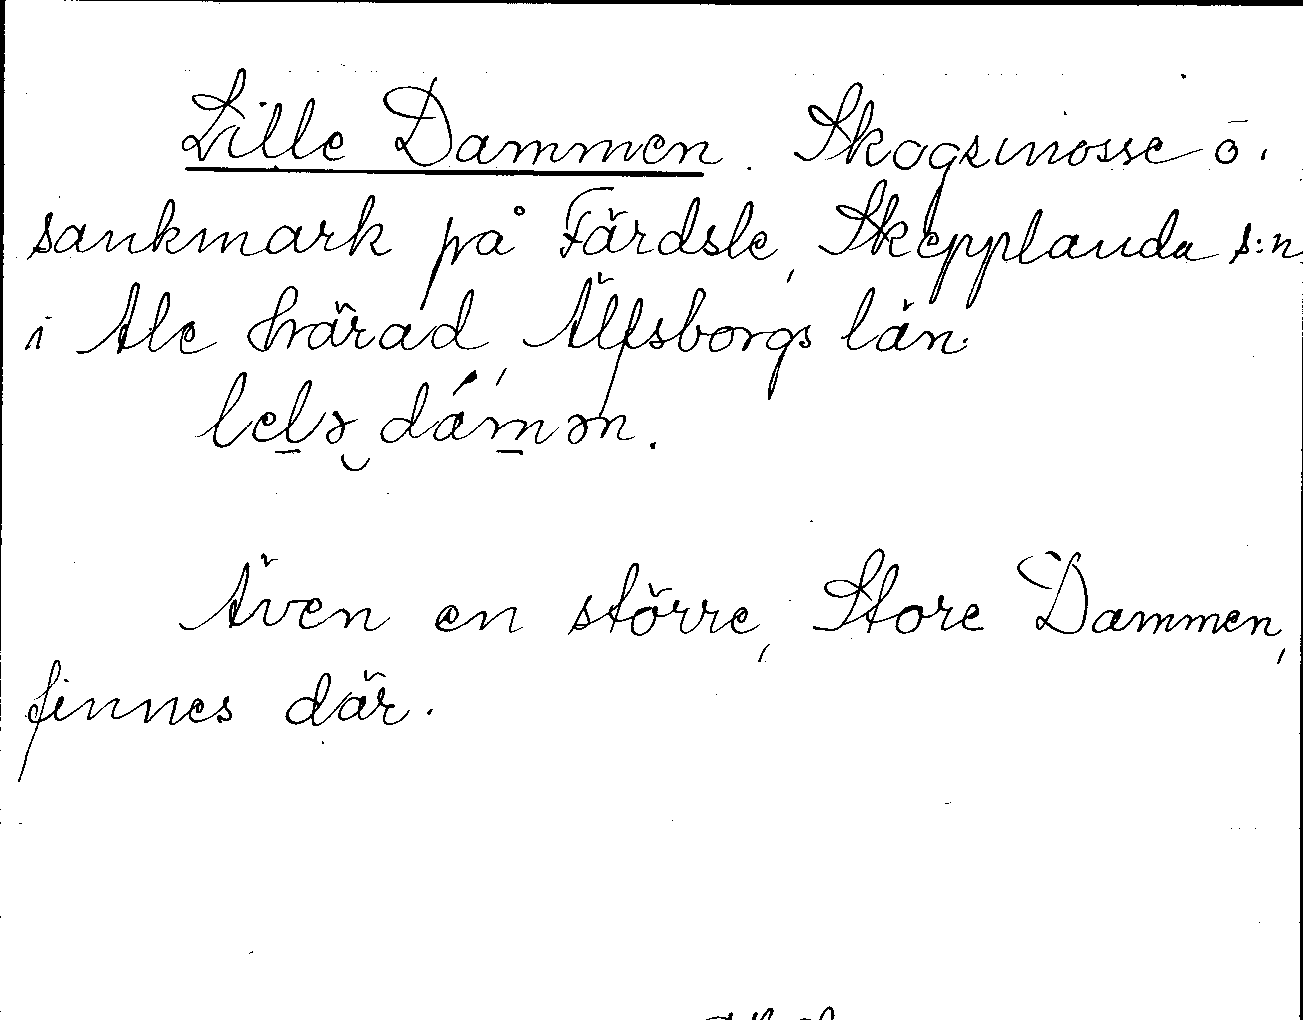 Lille Dammen. Skogsmosse o.
sankmark på Färdsle, Skepplanda s:n,
i Ale härad, Älfsborgs län.
lelə dámən.
Även en större, Store Dammen,
finnes där.